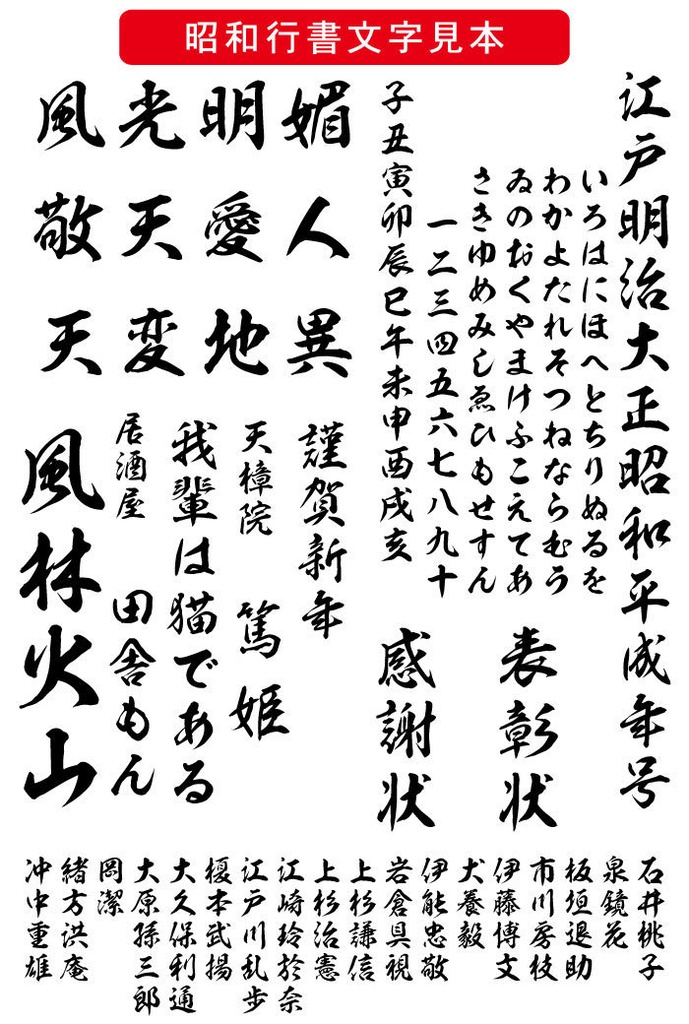 昭和行書文字見本
江戸明治大正昭和平成年号
いろはにほへとちりぬるを
わかよたれそつねならむう
ゐのおくやまけふこえてあ
さきゆめみしゑひもせすん
一二三四五六七八九十
子丑寅卯辰巳午未申酉戌亥
表彰状
感謝状
風光明媚
敬天愛人
天変地異
謹賀新年
天樟院 篤姫
我輩は猫である
居酒屋 田舎もん
風林火山
石井桃子
泉鏡花
板垣退助
市川房枝
伊藤博文
犬養毅
伊能忠敬
岩倉具視
上杉謙信
上杉治憲
江崎玲於奈
江戸川乱歩
榎本武揚
大久保利通
大原孫三郎
岡潔
緒方洪庵
冲中重雄